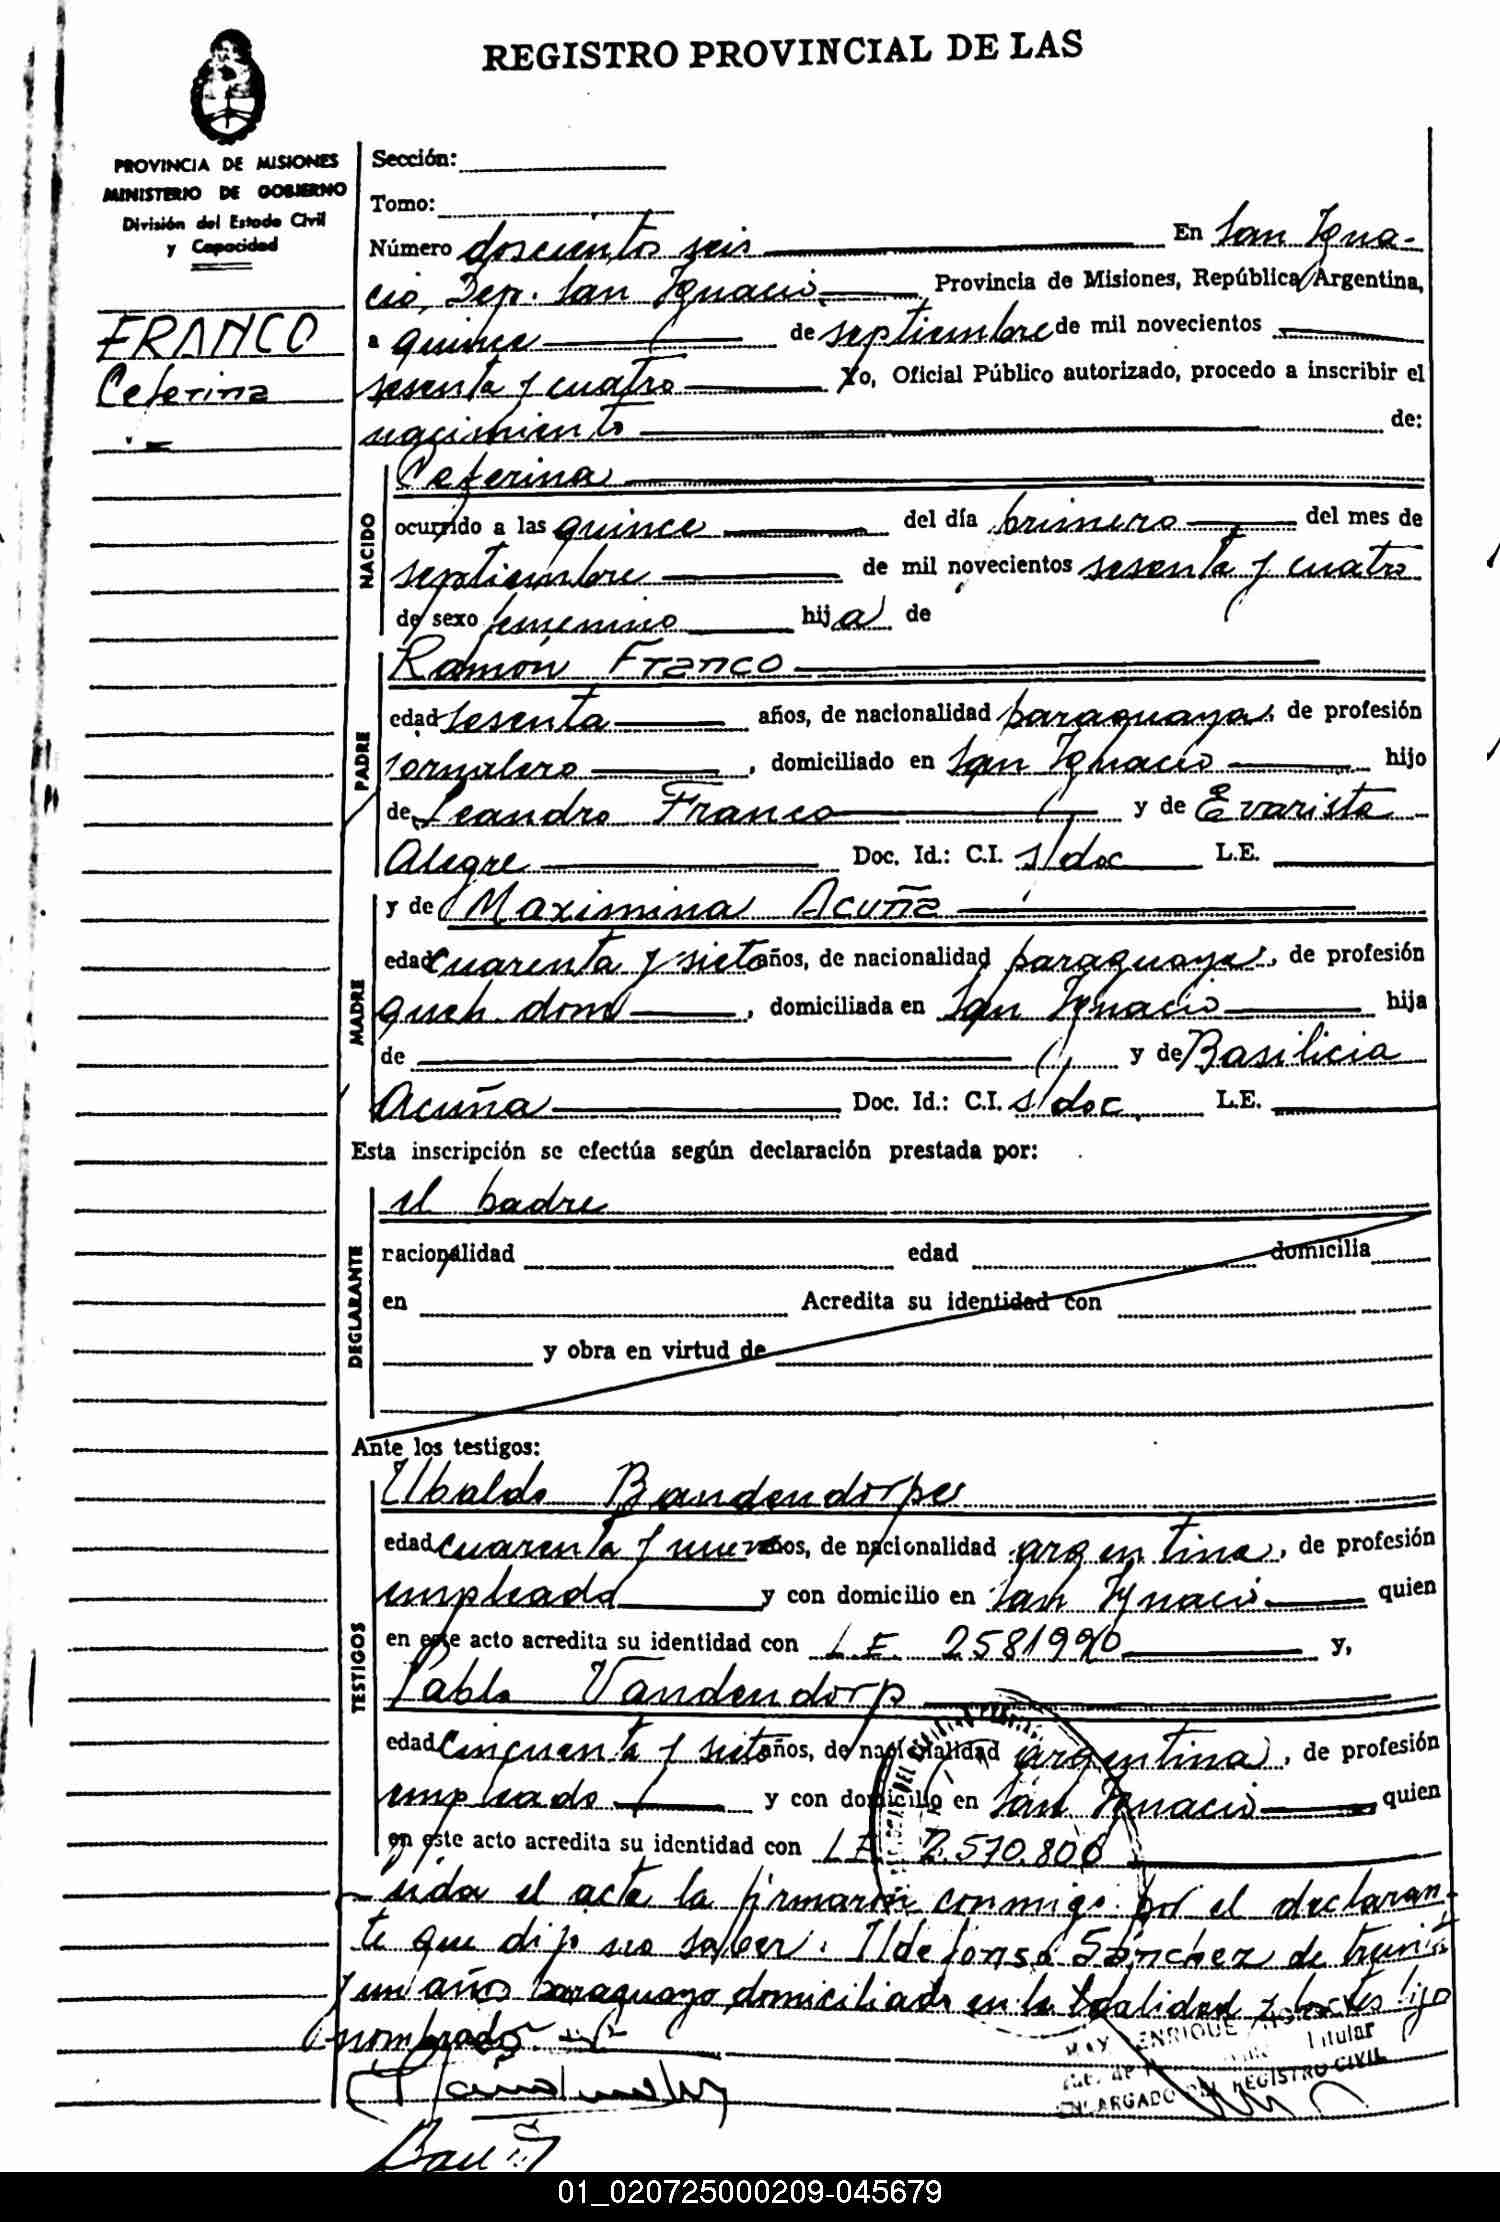 REGISTRO PROVINCIAL DE LAS
PROVINCIA DE MISIONES
MINISTERIO DE GOBIERNO
División del Estado Civil
y Capacidad
FRANCO
Ceferina
Sección:
Tomo:
Número doscientos seis En San Igna-
cio, Dep. San Ignacio Provincia de Misiones, República Argentina,
a quince de septiembre de mil novecientos
sesenta y cuatro Yo, Oficial Público autorizado, procedo a inscribir el
nacimiento de:
NACIDO
Ceferina
ocurrido a las quince del día primero del mes de
septiembre de mil novecientos sesenta y cuatro
de sexo femenino hija de
PADRE
Ramón Franco
edad sesenta años, de nacionalidad paraguaya, de profesión
jornalero, domiciliado en San Ignacio hijo
de Leandro Franco y de Evarista
Alegre Doc. Id.: C.I. s/doc L.E.
MADRE
y de Maximina Acuña
edad cuarenta y siete años, de nacionalidad paraguaya, de profesión
queh. dom, domiciliada en San Ignacio hija
de y de Basilicia
Acuña Doc. Id.: C.I. s/doc L.E.
Esta inscripción se efectúa según declaración prestada por:
DECLARANTE
el padre
nacionalidad edad domicilia
en Acredita su identidad con
y obra en virtud de
Ante los testigos:
TESTIGOS
Ubaldo Bandendorpe
edad cuarenta y nueve años, de nacionalidad argentina, de profesión
empleado y con domicilio en San Ignacio quien
en este acto acredita su identidad con L.E. 2581990 y,
Pablo Vandendorp
edad cincuenta y siete años, de nacionalidad argentina, de profesión
empleado y con domicilio en San Ignacio quien
en este acto acredita su identidad con L.E. 2.570.808
Leida el acta la firmaron conmigo por el declaran-
te que dijo no saber. Ildefonso Sánchez de treinta
y un años paraguayo domiciliado en la localidad y los testigo
nombrados
ENRIQUE
Titular
ENCARGADO DEL REGISTRO CIVIL
01_020725000209-045679